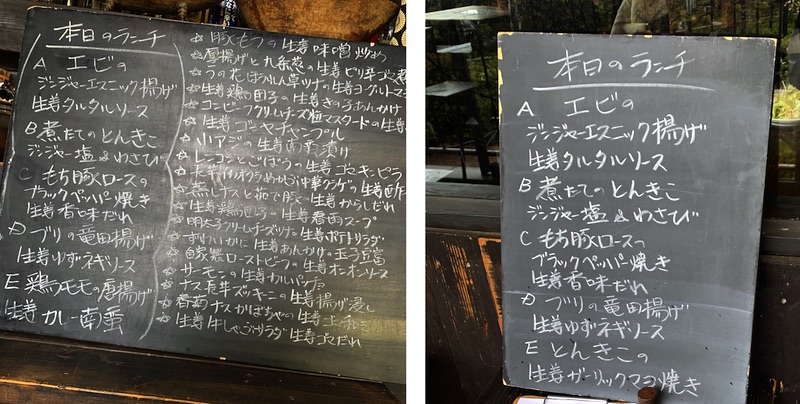 本日のランチ
A エビの
ジンジャーエスニック揚げ
生姜タルタルソース
B 煮たてのとんきこ
ジンジャー塩&わさび
C もち豚ロースの
ブラックペッパー焼き
生姜香味だれ
D ブリの竜田揚げ
生姜ゆずネギソース
E 鶏モモの唐揚げ
生姜カレー南蛮
☆豚もつの生姜味噌炒め
☆厚揚げと九条葱の生姜ピリ辛ゴマ煮
☆うの花ほうれん草ツナの生姜ヨーグルトマ
☆生姜鶏団子の生姜きのこあんかけ
☆コンビーフクリームチーズ粒マスタードの生姜
☆生姜ゴーヤチャンプル
☆小アジの生姜南蛮漬け
☆レンコンとごぼうの生姜ゴマキンピラ
☆長芋オクラめかぶ中華クラゲの生姜
☆蒸しナスと茹で豚の生姜からしだれ
☆生姜鶏 生姜春雨スープ
☆明太子クリームチーズツナの生姜ポテトサラダ
☆ 生姜あんかけの玉子豆腐
☆自家製ローストビーフの生姜オニオンソース
☆サーモンの生姜カルパッチョ
☆ナス長芋ズッキーニの生姜揚げ浸し
☆香菊ナスかぼちゃの生姜
☆生姜牛しゃぶサラダ 生姜ゴマだれ
本日のランチ
A エビの
ジンジャーエスニック揚げ
生姜タルタルソース
B 煮たてのとんきこ
ジンジャー塩&わさび
C もち豚ロースの
ブラックペッパー焼き
生姜香味だれ
D ブリの竜田揚げ
生姜ゆずネギソース
E とんきこの
生姜ガーリックマヨ焼き